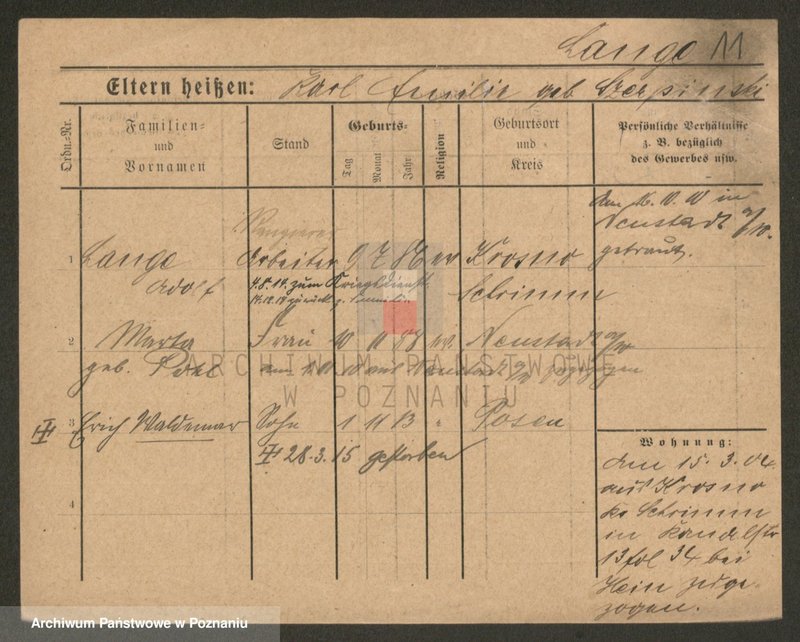 Lange 11
Eltern heißen: Karl Emilie geb. Szerpinski
Ordn.-Nr.
Familien- und Vornamen
Stand
Geburts-
Tag
Monat
Jahr
Religion
Geburtsort und Kreis
Persönliche Verhältnisse
z. B. bezüglich
des Gewerbes usw.
Am 16. 10. 10 in
Neustadt a/W.
getraut.
1 Lange Adolf Arbeiter 9 7 ev Krosno
Schrimm
4.8.14. zum Kriegsdienst
14.12.14 zurück z. Familie
2 Marta Frau 10 11 88 ev. Neustadt a/W
geb.
aus Neustadt a/W zugezogen
3 Erich Waldemar Sohn 1 11 13 " Posen
28.3.15 gestorben
4
Wohnung:
Am 15. 3. 04
aus Krosno
Kr Schrimm
in
13 fol 34 bei
Hein zuge-
zogen.
ARCHIWUM PAŃSTWOWE
W POZNANIU
Archiwum Państwowe w Poznaniu